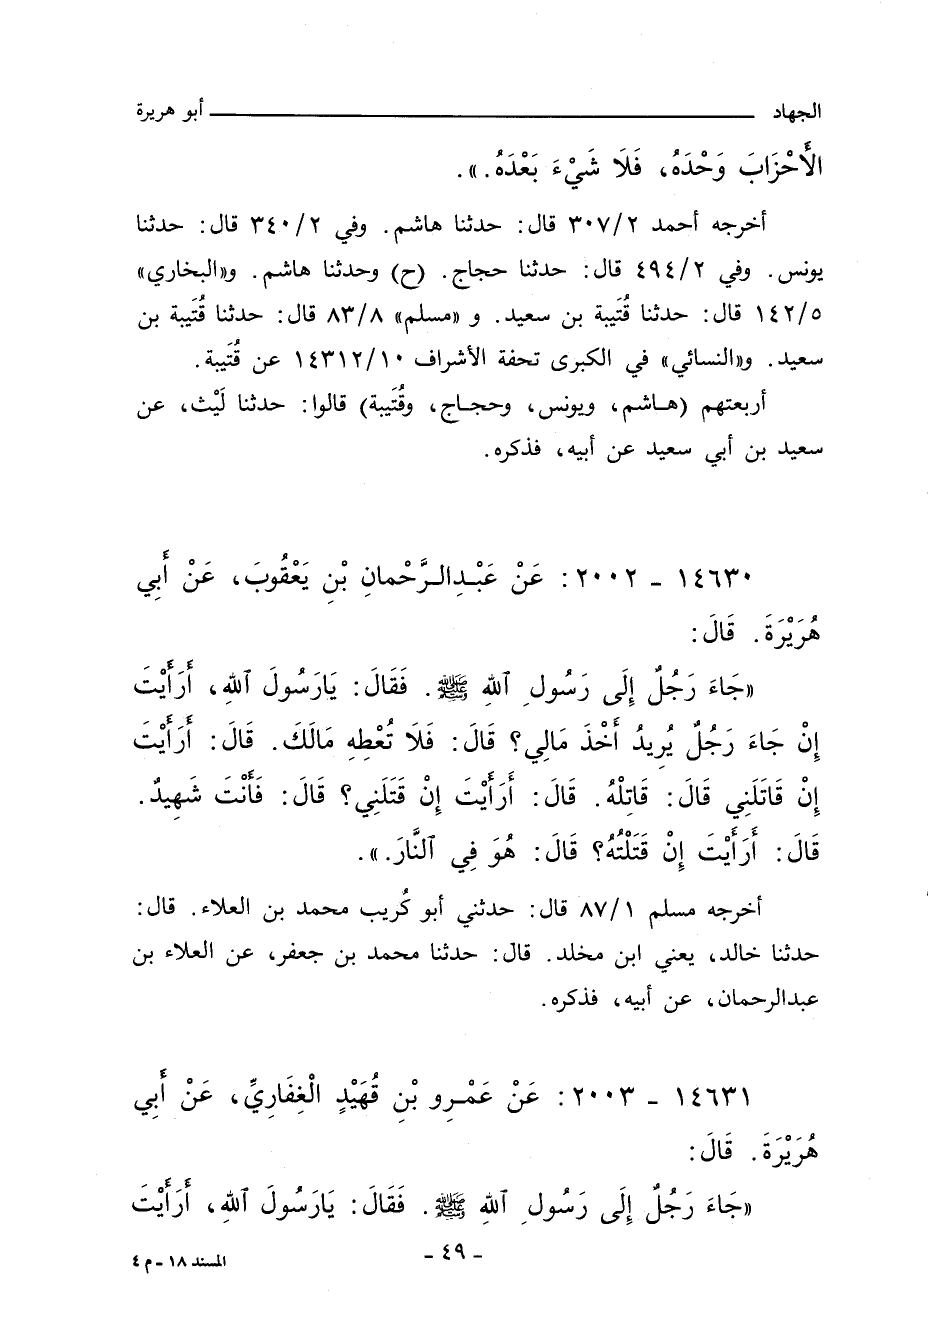 الجهاد ـــــــــــــــــــــ أبو هريرة
الأَحْزَابَ وَحْدَهُ، فَلَا شَيْءَ بَعْدَهُ.».
أخرجه أحمد ٣٠٧/٢ قال: حدثنا هاشم. وفي ٣٤٠/٢ قال: حدثنا
يونس. وفي ٤٩٤/٢ قال: حدثنا حجاج. (ح) وحدثنا هاشم. و«البخاري»
١٤٢/٥ قال: حدثنا قُتَيبة بن سعيد. و «مسلم» ٨٣/٨ قال: حدثنا قُتَيبة بن
سعيد. و«النسائي» في الكبرى تحفة الأشراف ١٤٣١٢/١٠ عن قُتَيبة.
أربعتهم (هاشم، ويونس، وحجاج، وقُتَيبة) قالوا: حدثنا لَيْث، عن
سعيد بن أبي سعيد عن أبيه، فذكره.
١٤٦٣٠ - ٢٠٠٢: عَنْ عَبْدِالرَّحْمانِ بْنِ يَعْقُوبَ، عَنْ أَبِي
هُرَيْرَةَ. قَالَ:
«جَاءَ رَجُلٌ إِلَى رَسُولِ ٱللهِ ﷺ. فَقَالَ: يَارَسُولَ ٱللهِ، أَرَأَيْتَ
إِنْ جَاءَ رَجُلٌ يُرِيدُ أَخْذَ مَالِي؟ قَالَ: فَلَا تُعْطِهِ مَالَكَ. قَالَ: أَرَأَيْتَ
إِنْ قَاتَلَنِي قَالَ: قَاتِلْهُ. قَالَ: أَرَأَيْتَ إِنْ قَتَلَنِي؟ قَالَ: فَأَنْتَ شَهِيدٌ.
قَالَ: أَرَأَيْتَ إِنْ قَتَلْتُهُ؟ قَالَ: هُوَ فِي ٱلنَّارَ.».
أخرجه مسلم ٨٧/١ قال: حدثني أبو كُريب محمد بن العلاء. قال:
حدثنا خالد، يعني ابن مخلد. قال: حدثنا محمد بن جعفر، عن العلاء بن
عبدالرحمان، عن أبيه، فذكره.
١٤٦٣١ - ٢٠٠٣: عَنْ عَمْرِو بْنِ قُهَيْدٍ الْغِفَارِيِّ، عَنْ أَبِي
هُرَيْرَةَ. قَالَ:
«جَاءَ رَجُلٌ إِلَى رَسُولِ ٱللهِ ﷺ. فَقَالَ: يَارَسُولَ ٱللهِ، أَرَأَيْتَ
- ٤٩ -
المسند ١٨ - م ٤